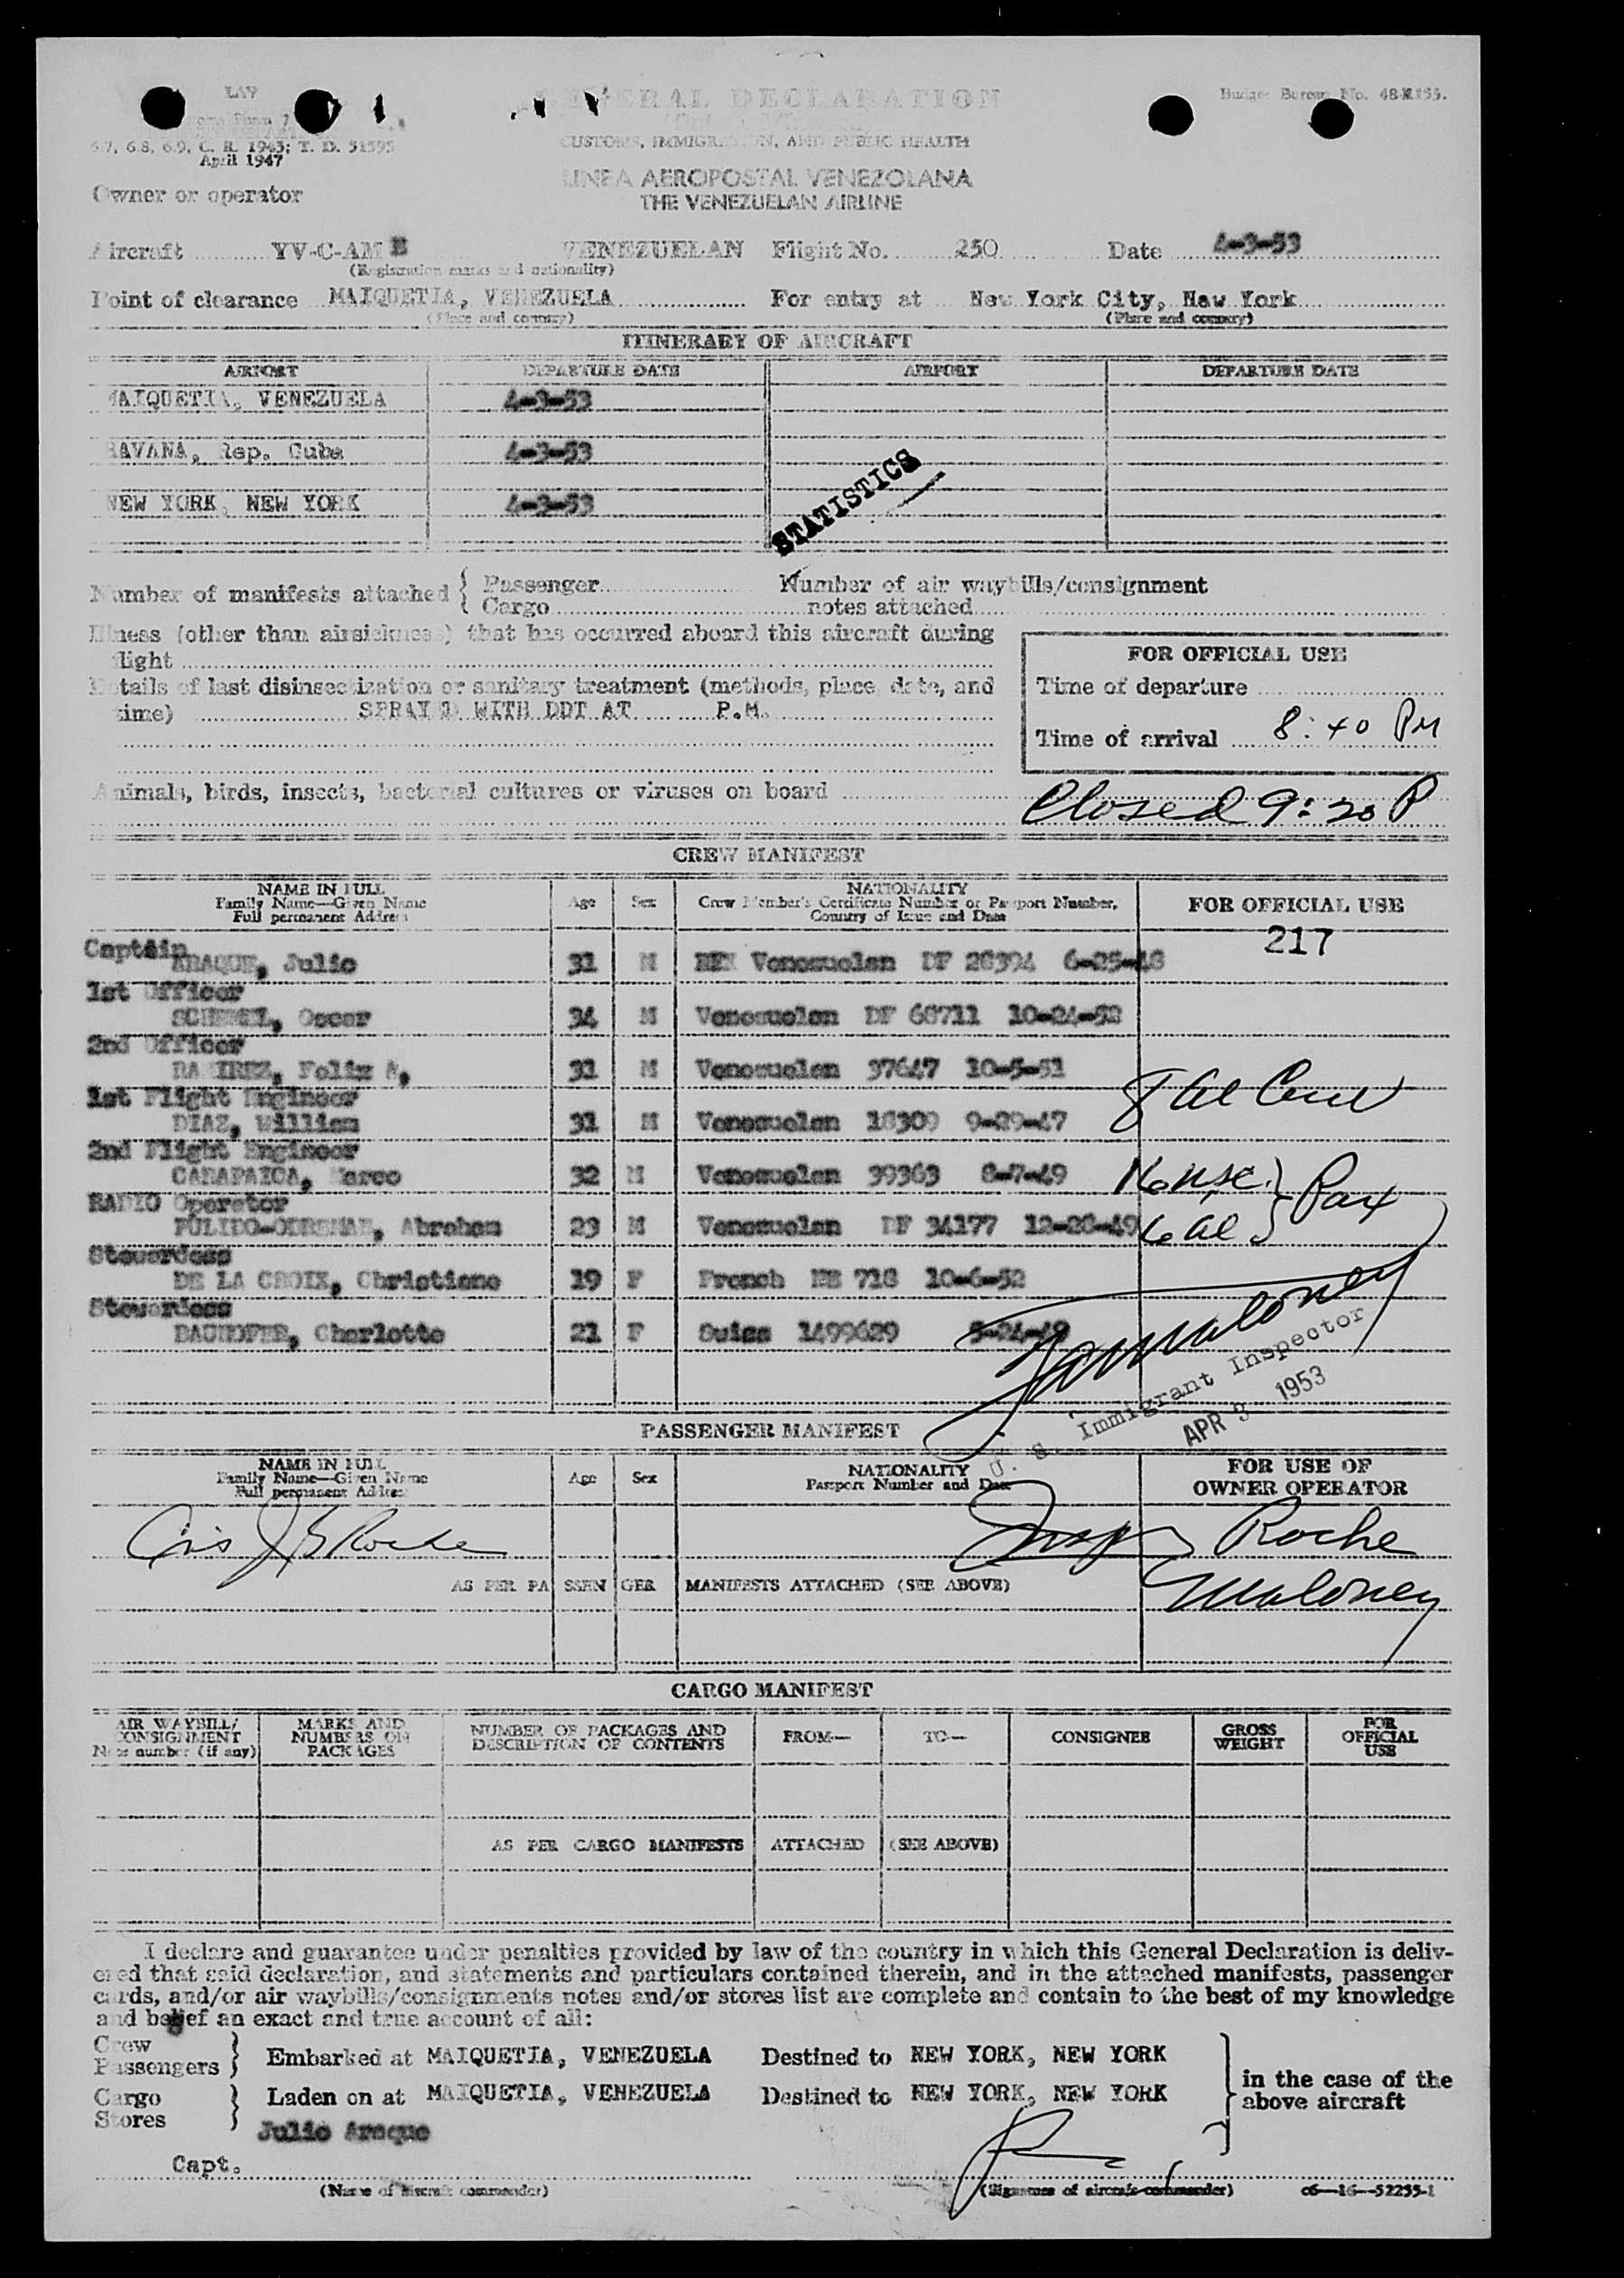 LAV
GENERAL DECLARATION
Budget Bureau No. 48-R133.
6.7, 6.8, 6.9, C. R. 1943; T. D. 51595
CUSTOMS, IMMIGRATION, AND PUBLIC HEALTH
April 1947
LINEA AEROPOSTAL VENEZOLANA
Owner or operator
THE VENEZUELAN AIRLINE
Aircraft YV-C-AM VENEZUELAN Flight No. 250 Date 4-3-53
(Registration marks and nationality)
Point of clearance MAIQUETIA, VENEZUELA For entry at New York City, New York
(Place and country) (Place and country)
ITINERARY OF AIRCRAFT
AIRPORT DEPARTURE DATE AIRPORT DEPARTURE DATE
MAIQUETIA, VENEZUELA 4-3-53
HAVANA, Rep. Cuba 4-3-53
STATISTICS
NEW YORK, NEW YORK 4-3-53
Number of manifests attached { Passenger Number of air waybills/consignment
Cargo notes attached
Illness (other than airsickness) that has occurred aboard this aircraft during
flight
FOR OFFICIAL USE
Details of last disinsectization or sanitary treatment (methods, place, date, and
Time of departure
time) SPRAYED WITH DDT AT P.M.
Time of arrival 8:40 PM
Animals, birds, insects, bacterial cultures or viruses on board
Closed 9:20 P
CREW MANIFEST
NAME IN FULL Age Sex NATIONALITY FOR OFFICIAL USE
Family Name—Given Name Crew Member's Certificate Number or Passport Number,
Full permanent Address Country of Issue and Date
217
Captain
ARAQUE, Julio 31 M Venezuelan DF 28394 6-25-48
1st Officer
Oscar 34 M Venezuelan DF 68711 10-24-52
2nd Officer
RAMIREZ, Felix A, 31 M Venezuelan 37647 10-5-51
1st Flight Engineer
8 al Crew
DIAZ, William 31 M Venezuelan 18309 9-29-47
2nd Flight Engineer
Marco 32 M Venezuelan 39363 8-7-49
16 usc } Pax
RADIO Operator
Abraham 23 M Venezuelan DF 34177 12-28-49
6 al
Stewardess
DE LA CROIX, Christiane 19 F French 718 10-6-52
Stewardess
BAUHOFER, Charlotte 21 F Suiss 1499629 5-24-49
Maloney
U. S. Immigrant Inspector
APR 3 1953
PASSENGER MANIFEST
NAME IN FULL Age Sex NATIONALITY FOR USE OF
Family Name—Given Name Passport Number and Date OWNER OPERATOR
Full permanent Address
Roche Insp Roche
Maloney
AS PER PASSENGER MANIFESTS ATTACHED (SEE ABOVE)
CARGO MANIFEST
AIR WAYBILL/ MARKS AND NUMBER OF PACKAGES AND FROM— TO— CONSIGNEE GROSS FOR
CONSIGNMENT NUMBERS ON DESCRIPTION OF CONTENTS WEIGHT OFFICIAL
Note number (if any) PACKAGES USE
AS PER CARGO MANIFESTS ATTACHED (SEE ABOVE)
I declare and guarantee under penalties provided by law of the country in which this General Declaration is deliv-
ered that said declaration, and statements and particulars contained therein, and in the attached manifests, passenger
cards, and/or air waybills/consignments notes and/or stores list are complete and contain to the best of my knowledge
and belief an exact and true account of all:
Crew
Passengers } Embarked at MAIQUETIA, VENEZUELA Destined to NEW YORK, NEW YORK
in the case of the
Cargo } Laden on at MAIQUETIA, VENEZUELA Destined to NEW YORK, NEW YORK
above aircraft
Stores
Julio Araque
Capt.
(Name of aircraft commander) (Signature of aircraft commander) c6—16—52255-1